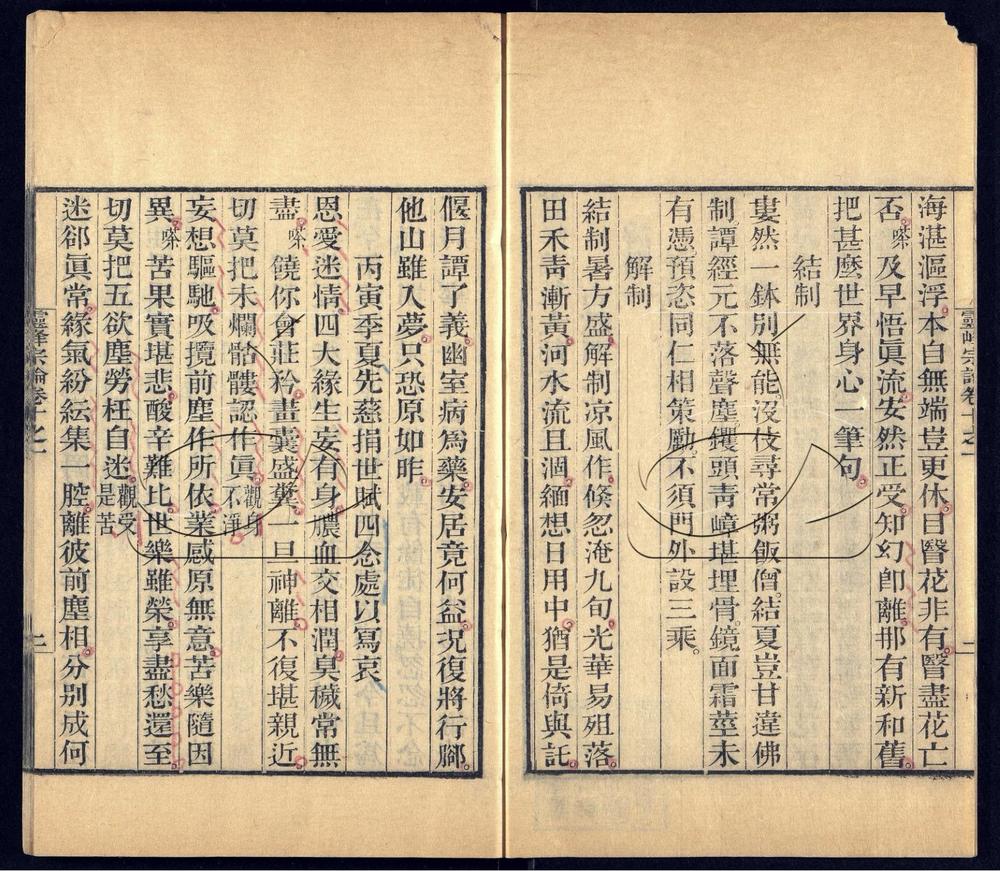 海湛漚浮。本自無端豈更休。目瞖花非有。瞖盡花亡
否。嗏及早悟眞流。安然正受。知幻卽離。那有新和舊。
把甚麽世界身心一筆句。
結制
婁然一鉢別無能。沒伎尋常粥飯僧。結夏豈甘違佛
制。譚經元不落聲塵。钁頭靑嶂堪埋骨。鏡面霜莖未
有憑。預恣同仁相策勵。不須門外設三乘。
解制
結制暑方盛。解制凉風作。倏忽淹九旬。光華易殂落。
田禾靑漸黃。河水流且涸。緬想日用中。猶是倚與託。
靈峰宗論卷十之一
二
偃月譚了義。幽室病爲藥。安居竟何益。況復將行腳。
他山雖入夢。只恐原如昨。
丙寅季夏先慈捐世賦四念處以寫哀
恩愛迷情。四大緣生妄有身。膿血交相潤。臭穢常無
盡。嗏饒你會莊矜。畫囊盛糞。一旦神離。不復堪親近。
切莫把未爛骷髏認作眞。觀身不淨。
妄想驅馳。吸攬前塵作所依。業感原無意。苦樂隨因
異。嗏苦果實堪悲。酸辛難比。世樂雖榮。享盡愁還至。
切莫把五欲塵勞枉自迷。觀受是苦
迷郤眞常。緣氣紛紜集一腔。離彼前塵相。分別成何
靈峰宗論卷十之一
三